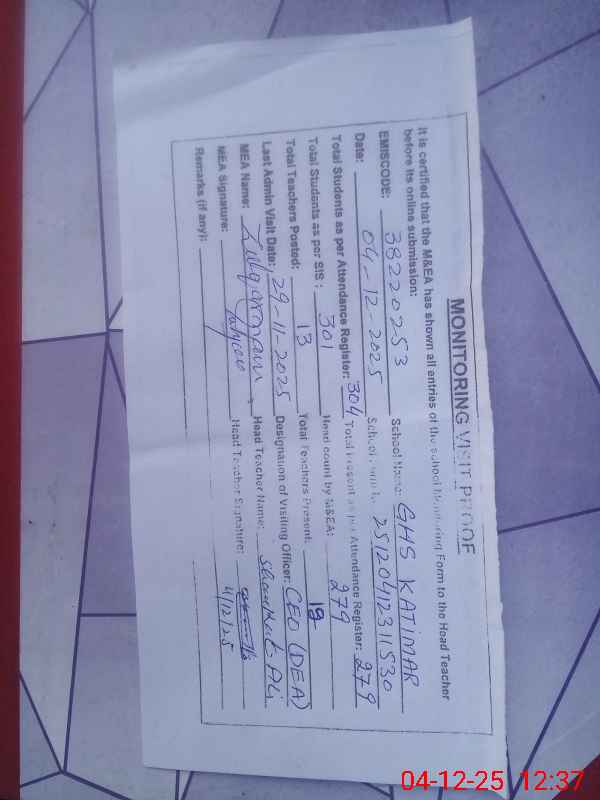 MONITORING VISIT PROOF
It is certified that the M&EA has shown all entries of the school Monitoring Form to the Head Teacher
before its online submission:
EMISCODE: 38220253 School Name: GHS KATIMAR
Date: 04-12-2025 School 25120412311530
Total Students as per Attendance Register: 304 Total Present as per Attendance Register: 279
Total Students as per SIS: 301 Head count by M&EA: 279
Total Teachers Posted: 13 Total Teachers Present:
Last Admin Visit Date: 29-11-2025 Designation of Visiting Officer: CEO (DEA)
MEA Name: Head Teacher Name: Shaukat Ali
MEA Signature: Head Teacher Signature:
4/12/25
Remarks (if any):
04-12-25 12:37